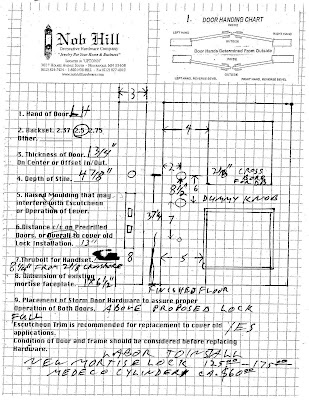 Nob Hill
Decorative Hardware Company
"Jewelry For Your Home & Business"
1.
DOOR HANDING CHART
LEFT HAND
RIGHT HAND
INSIDE
Door Hands Determined From Outside
INSIDE
LEFT HAND, REVERSE BEVEL
RIGHT HAND, REVERSE BEVEL
1. Hand of Door. LH
2. Backset. 2.37 2.5 2.75
Other.
3. Thickness of Door. 1 3/4"
On Center or Offset in/Out.
4. Depth of Stile. 4 7/8"
5. Raised Moulding that may
interfere with Escutcheon
or Operation of Lever.
6. Distance c/c on Predrilled
Doors, or Overall to cover old
Lock Installation. 13"
7. Thrubolt for Handset.
8 1/4" FROM 2 1/8 CROSSBORE
8. Dimension of existing
mortise faceplate.
9. Placement of Storm Door Hardware to assure proper
Operation of Both Doors. ABOVE PROPOSED LOCK
FULL
Escutcheon Trim is recommended for replacement to cover old
applications. YES
Condition of Door and frame should be considered before replacing
Hardware.
LABOR TO INSTALL
NEW MORTISE LOCK 125.00 - 175.00
MEDECO CYLINDER CA. $60.00
3
4
2
2 1/8" CROSS
BORE
8 1/2
6
DUMMY KNOB
7
8
5
FINISHED FLOOR